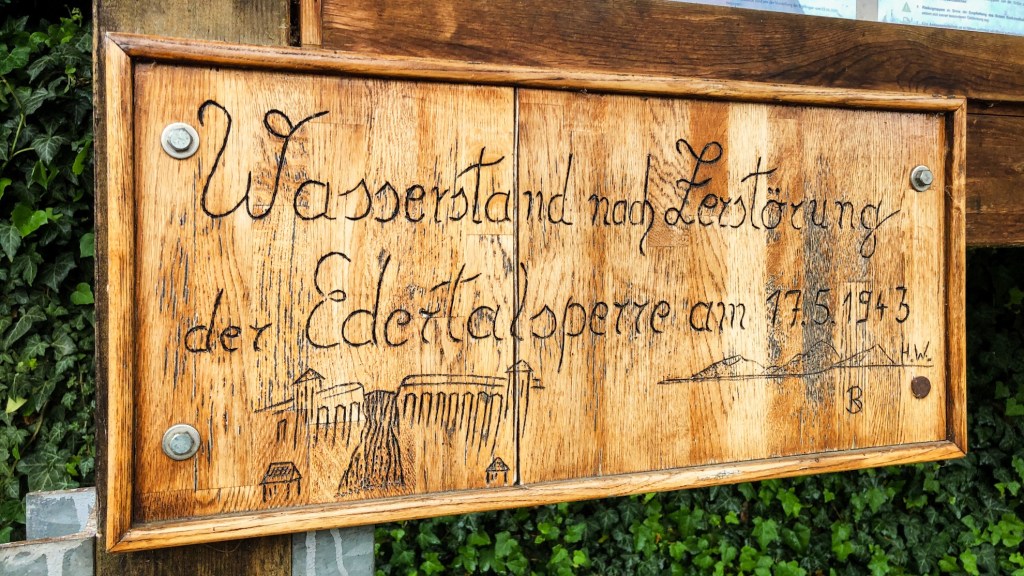 Wasserstand nach Zerstörung
der Edertalsperre am 17.5.1943
H.W.
B